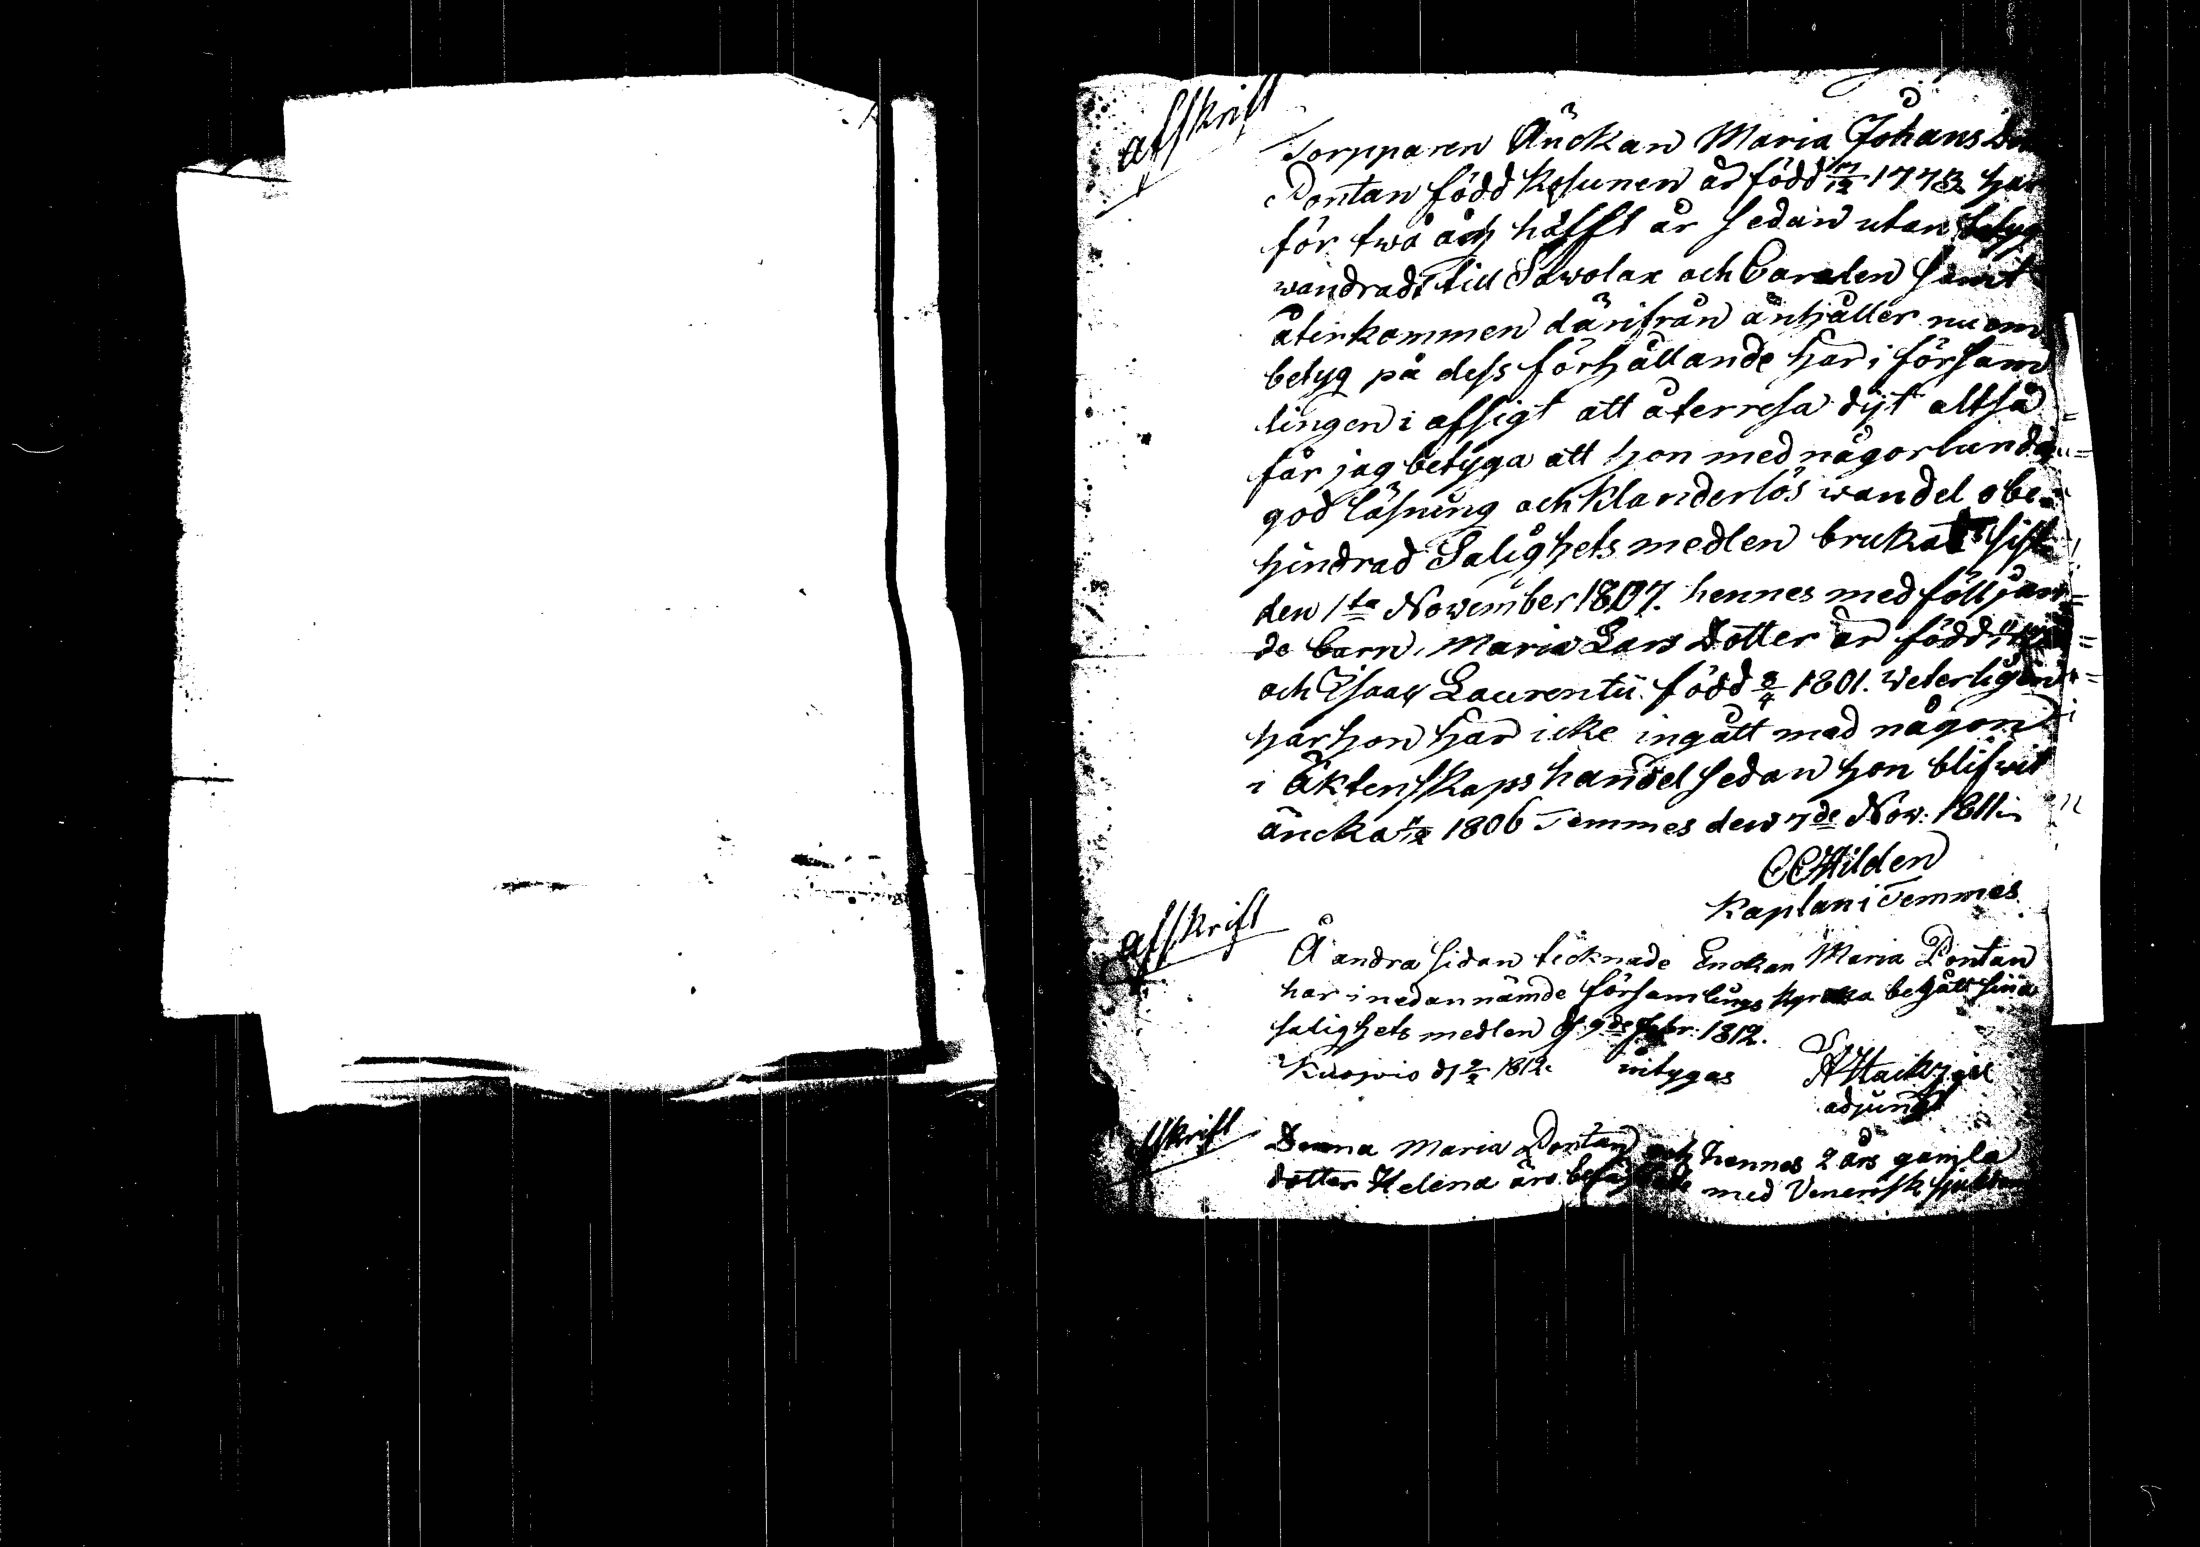 afskrift
Torpparen Änckan Maria Johans
Pontan född Kosunen är född 17/12 1773 har
för twå åch halfft år sedan utan betyg
wandradt till Sawolax och Carelen samt
återkommen därifrån anhåller nu om
betyg på dess förhållande har i försam
lingen i afsigt att återresa dijt altså
får jag betyga att hon med någorlunda
god läsning och klanderlös wandel obe=
hindrad Salighets medlen brukat sist
den 1ta November 1807. hennes medfölljan=
de barn, Maria Lars Dotter är född
och Isaac Laurentii född 3/4 1801. Weterligen
har hon här icke ingått med någon
i Äktenskaps handel sedan hon blifwit
äncka 1806 Temmes den 7de Nov: 1811
Hilden
Kaplan i Temmes
afskrift
Å andra sidan tecknade Enckan Maria Pontan
har i nedannämde församlings kyrcka begått sina
salighets medlen d. 9de Febr. 1812.
Kuopio d 1812. intygas
adjunct
afskrift
Denna Maria Pontan och hennes 2 års gamla
dotter Helena äro med Venerisk sjukdom